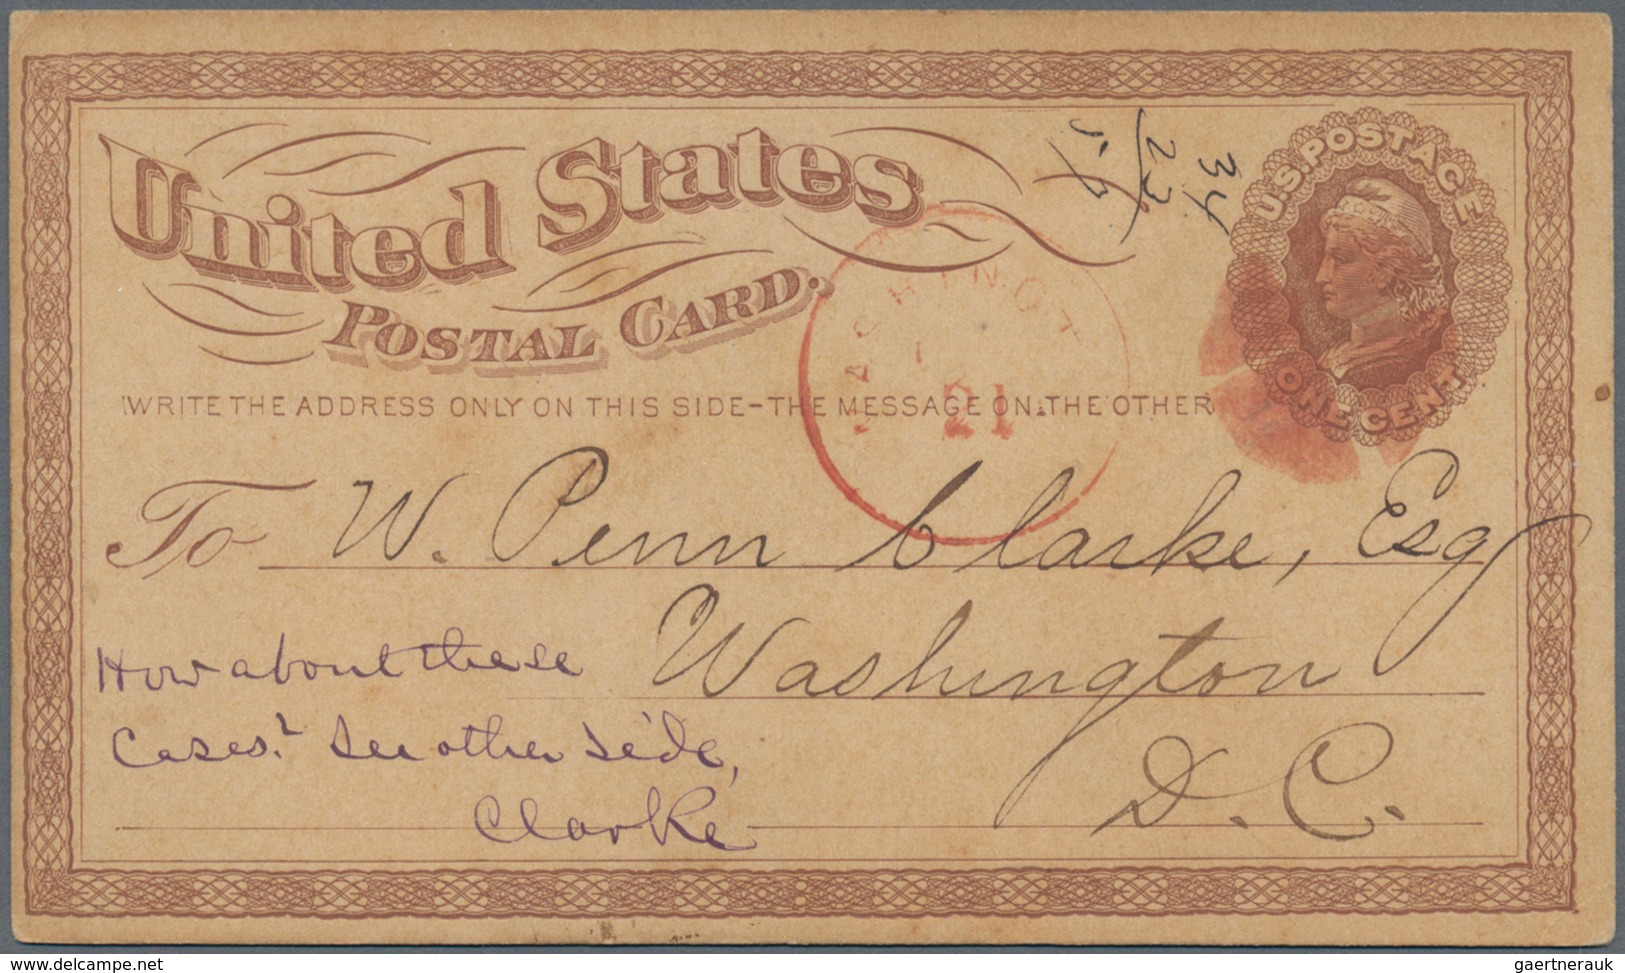 United States
POSTAL CARD.
U.S. POSTAGE
ONE CENT
34
23
WASHINGT
21
WRITE THE ADDRESS ONLY ON THIS SIDE-THE MESSAGE ON THE OTHER
To W. Penn Clarke, Esq
Washington
D.C.
How about these
Cases? See other side,
Clarke
www.delcampe.net
gaertnerauk